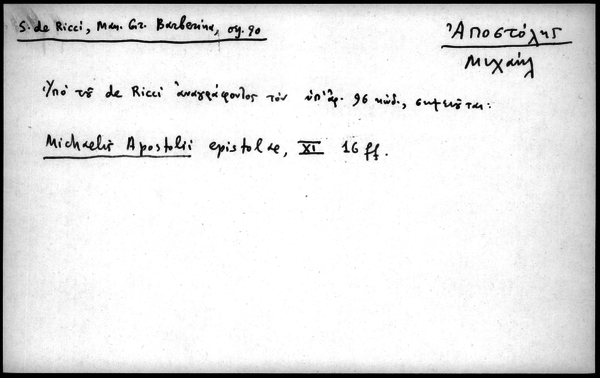 S. de Ricci, Man. Gr. Barberina, ση. 90
Ἀποστόλης
Μιχαήλ
Ὑπὸ τοῦ de Ricci ἀναγράφοντος τὸν ὑπ' ἀρ. 96 κώδ., σημειοῦται:
Michaelis Apostolii epistolae, XI 16 ff.